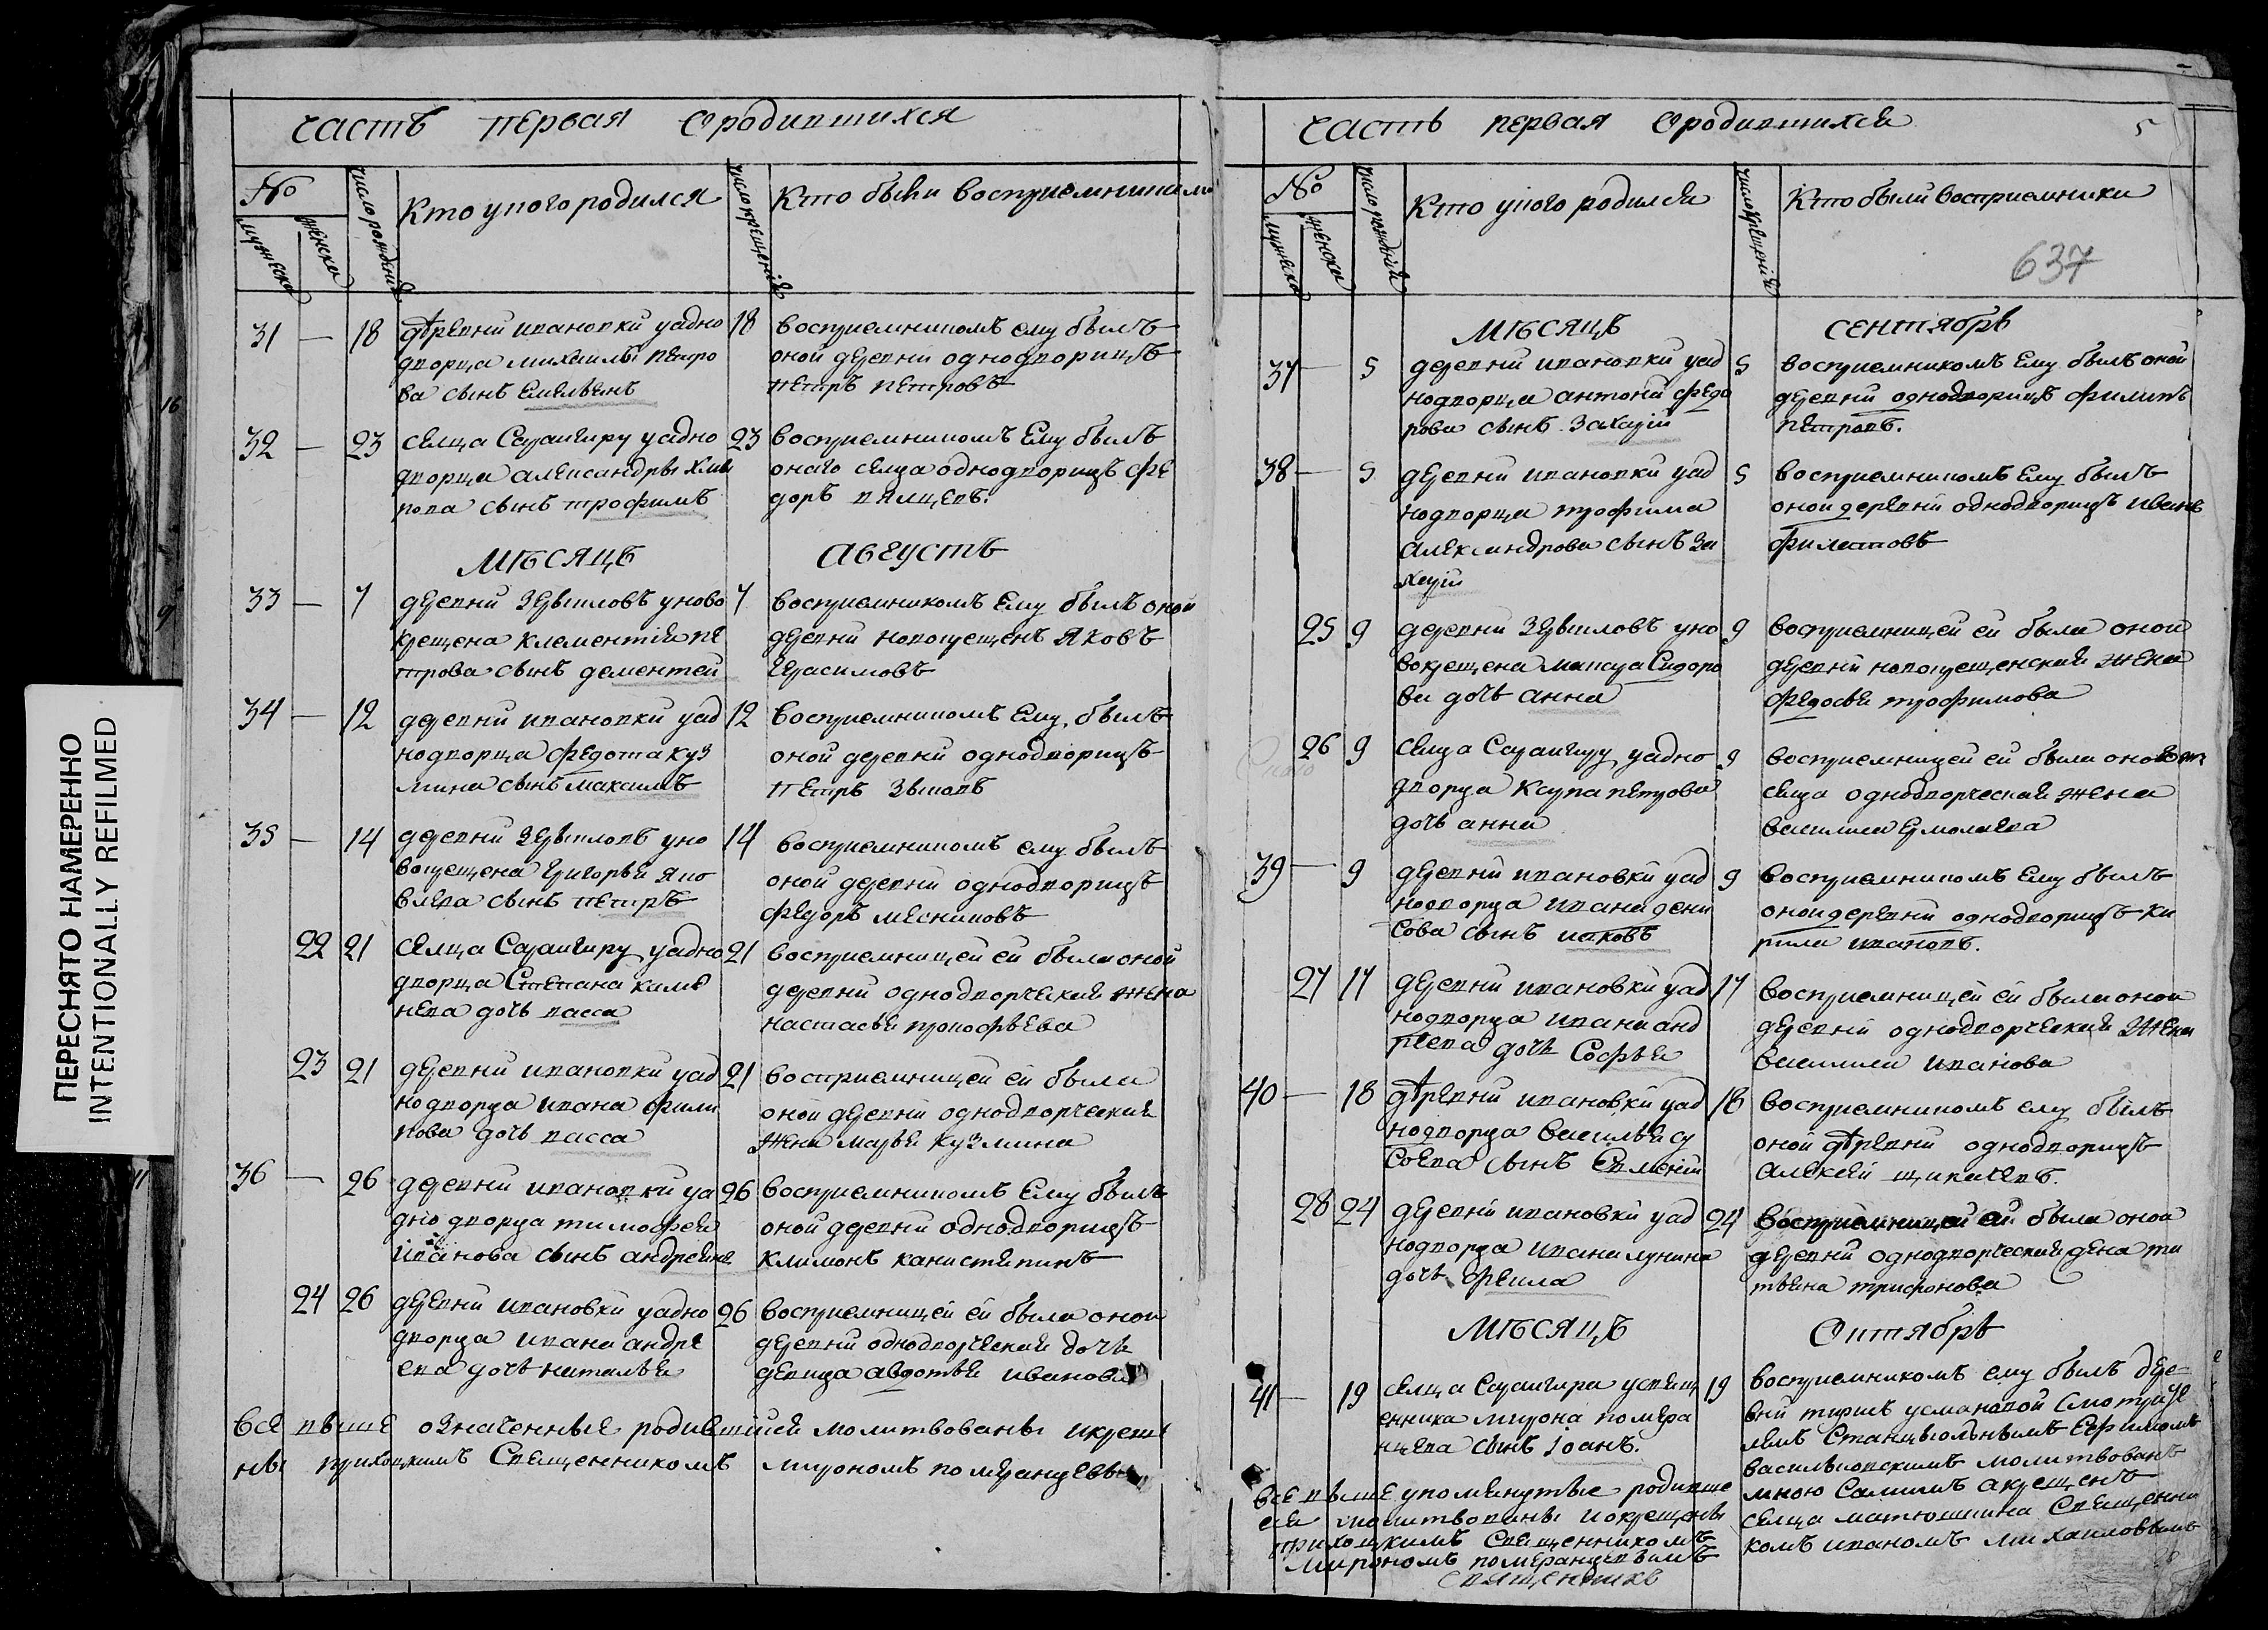 ПЕРЕСНЯТО НАМЕРЕННО
INTENTIONALLY REFILMED
часть первая Ородившихся
№
мужеска
женска
число рождения
Кто укого родился
число крещения
Кто были восприемниками
31 — 18 деревни ивановки уадно
дворца михаилы петро
ва сынъ Емельянъ
18 восприемникомъ ему былъ
оной деревни однодворицъ
петръ петровъ
32 — 23 сельца уадно
дворца александры
сынъ трофимъ
23 восприемникомъ Ему былъ
онаго сельца однодворицъ фе
доръ
мѣсяцъ августъ
33 — 7 деревни уново
крещена клементія пе
трова сынъ дементей
7 восприемникомъ Ему былъ оной
деревни новокрещенъ яковъ
герасимовъ
34 — 12 деревни ивановки уад
нодворца федота куз
мина сынъ максимъ
12 восприемникомъ Ему былъ
оной деревни однодворицъ
петръ
35 — 14 деревни уно
вокрещена григорья яко
влева сынъ петръ
14 восприемникомъ ему былъ
оной деревни однодворицъ
федоръ месниковъ
22 21 сельца уадно
дворца Степана
дочь васса
21 восприемницей ей была оной
деревни однодворческая жена
настасья прокофьева
23 21 деревни ивановки уад
нодворца ивана фили
пова дочь васса
21 восприемницей ей была
оной деревни однодворческия
жена марья кузмина
36 — 26 деревни ивановки уа
дно дворца тимофея
иванова сынъ андреянъ
26 восприемникомъ Ему былъ
оной деревни однодворицъ
24 26 деревни ивановки уадно
дворца ивана андре
ева дочь наталья
26 восприемницей ей была оной
деревни однодворческая дочь
девица авдотья иванова
все выше означенные родившися молитвованы икреще
ны приходскимъ Священникомъ мирономъ померанцевы
часть первая Ородившихся
5
№
мужеска
женска
число рождения
Кто укого родился
число крещения
Кто были восприемники
637
мѣсяцъ сентябрь
37 — 5 деревни ивановки уад
нодворца антона федо
рова сынъ захарій
5 восприемникомъ Ему былъ оной
деревни однодворицъ филипъ
петровъ.
38 — 5 деревни ивановки уад
нодворца трофима
александрова сынъ за
харій
5 восприемникомъ Ему былъ
оной деревни однодворицъ иванъ
филатовъ
25 9 деревни уно
вокрещена Сидоро
ва дочь анна
9 восприемницей ей была оной
деревни новокрещенская жена
федосья трофимова
26 9 сельца уадно
дворца петрова
дочь анна
9 восприемницей ей была
сельца однодворческая жена
василиса ермолаева
39 — 9 деревни ивановки уад
нодворца ивана дени
сова сынъ иаковъ
9 восприемникомъ Ему былъ
оной деревни однодворицъ ки
рила ивановъ.
27 17 деревни ивановки уад
нодворца ивана анд
реева дочь Софья
17 восприемницей ей была оной
деревни однодворческая жена
василиса иванова
40 — 18 деревни ивановки уад
нодворца василья сы
соева сынъ Евменій
18 восприемникомъ ему былъ
оной деревни однодворицъ
алексей
28 24 деревни ивановки уад
нодворца ивана лунина
дочь
24 восприемницей ей была оной
деревни однодворческая жена та
тьяна трифонова
мѣсяцъ Октябрь
41 — 19 сельца усвящ
енника мирона помера
нцева сынъ іоанъ.
19 восприемникомъ ему былъ дере
вни смотрите
лемъ Ефимомъ
васильевскимъ молитвованъ
мною Самимъ акрещенъ
сельца матюшкина Священни
комъ иваномъ михаиловымъ
все выше упомянутые родивше
ся молитвованы икрещены
приходскимъ Священникомъ
мирономъ померанцевымъ
священникъ